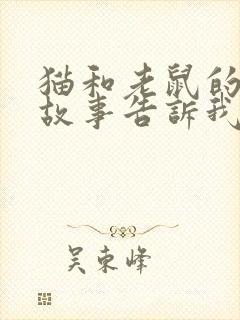 猫和老鼠的
故事告訴我
吴東峰